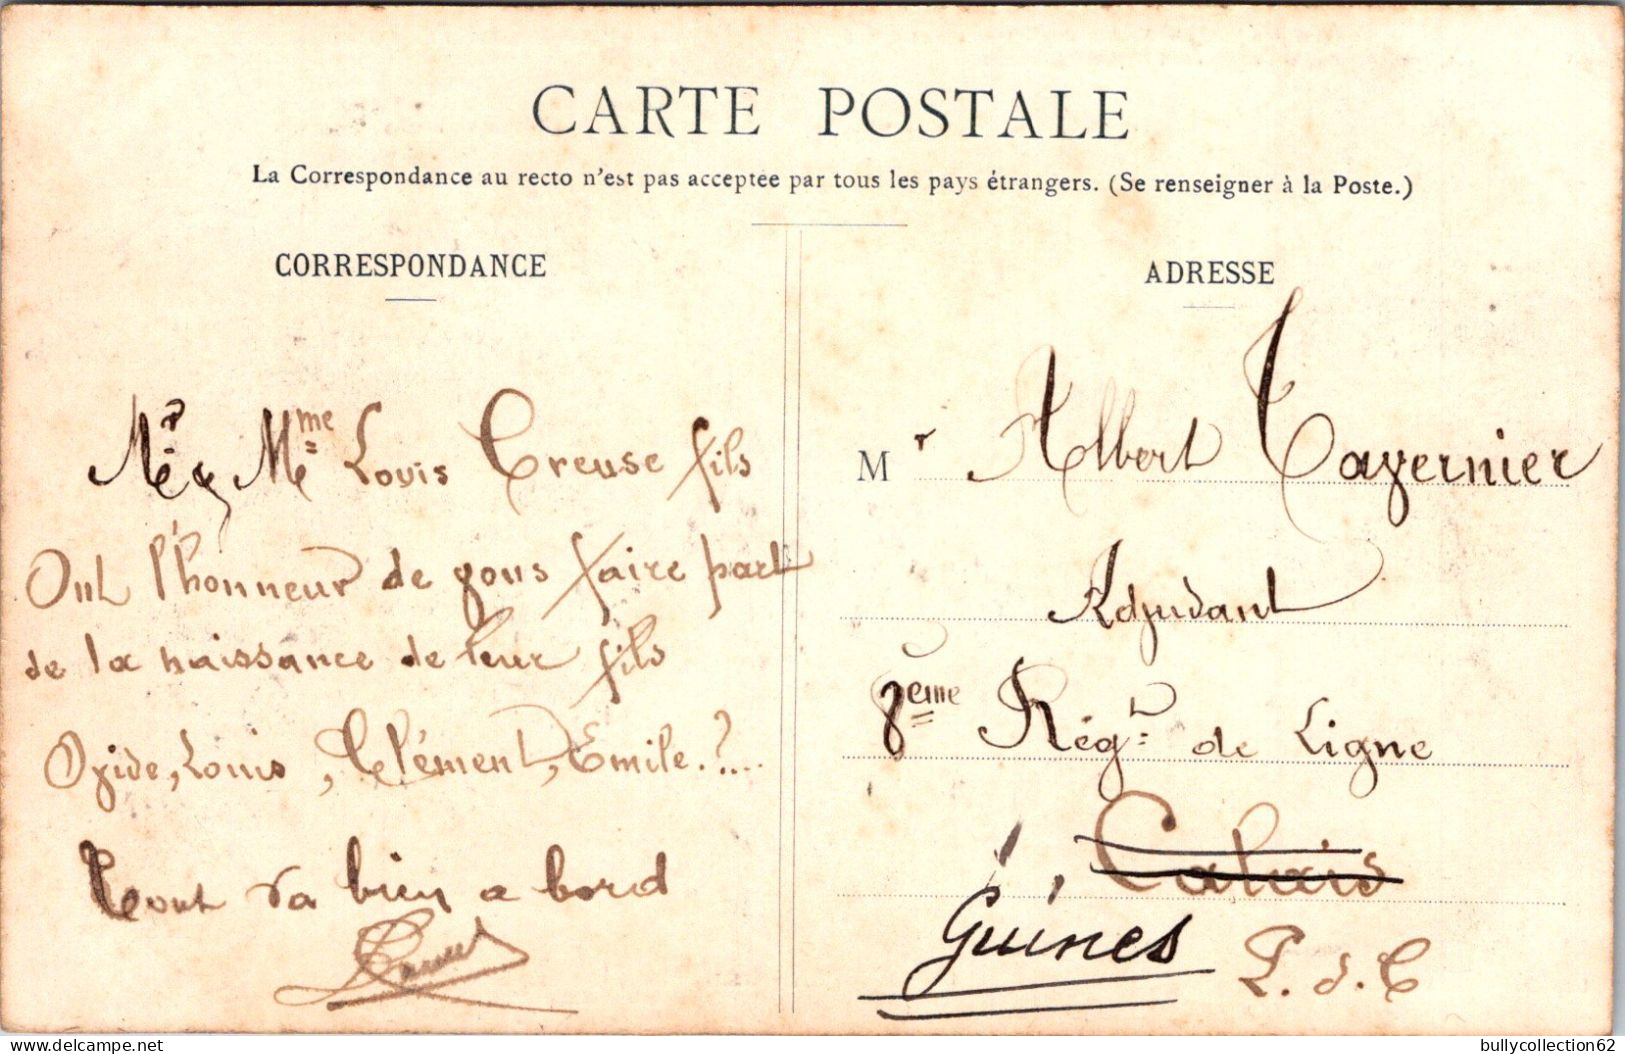 CARTE POSTALE
La Correspondance au recto n'est pas acceptée par tous les pays étrangers. (Se renseigner à la Poste.)
CORRESPONDANCE
Mr & Mme Louis Creuse fils
Ont l'honneur de vous faire part
de la naissance de leur fils
Ovide, Louis, Clément, Emile.?....
Tout va bien a bord
ADRESSE
Mr Albert Tavernier
Adjudant
8eme Régt de Ligne
Calais
Guines P. d. C
delcampe.net
bullycollection62